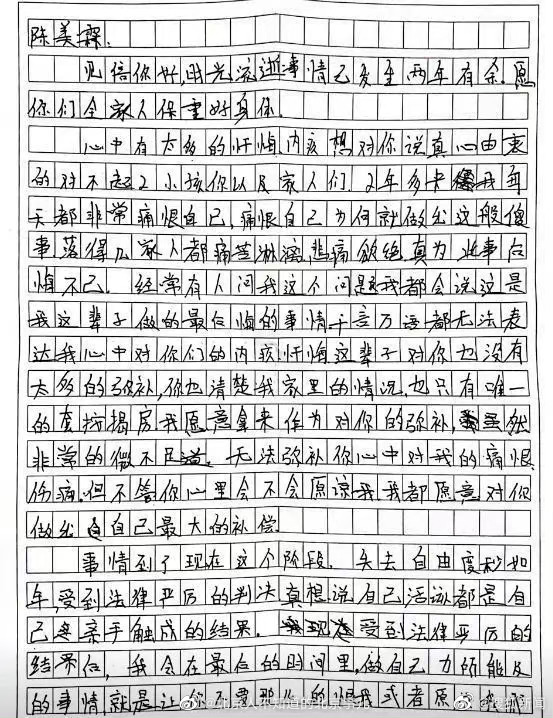 陈美霖.
见信你好,时光流逝事情已发生两年有余.愿
你们全家人保重好身体.
心中有太多的忏悔内疚想对你说真心由衷
的对不起2小孩你以及家人们.2年多来我每
天都非常痛恨自己,痛恨自己为何就做出这般傻
事.落得几家人都痛苦淋漓,悲痛欲绝真为此事后
悔不已.经常有人问我这个问题我都会说这是
我这辈子做的最后悔的事情千言万语都无法表
达我心中对你们的内疚忏悔这辈子对你也没有
太多的弥补,你也清楚我家里的情况,也只有唯一
的套按揭房我愿意拿来作为对你的弥补,虽然
非常的微不足道.无法弥补你心中对我的痛恨.
伤痛.但不管你心里会不会原谅我我都愿意对你
做出自己最大的补偿.
事情到了现在这个阶段.失去自由度秒如
年,受到法律严厉的判决真想说自己活该都是自
己亲手触成的结果.我现在受到法律严厉的
结果后,我会在最后的时间里,做自己力所能及
的事情,就是让你不要那么的恨我或者原谅我